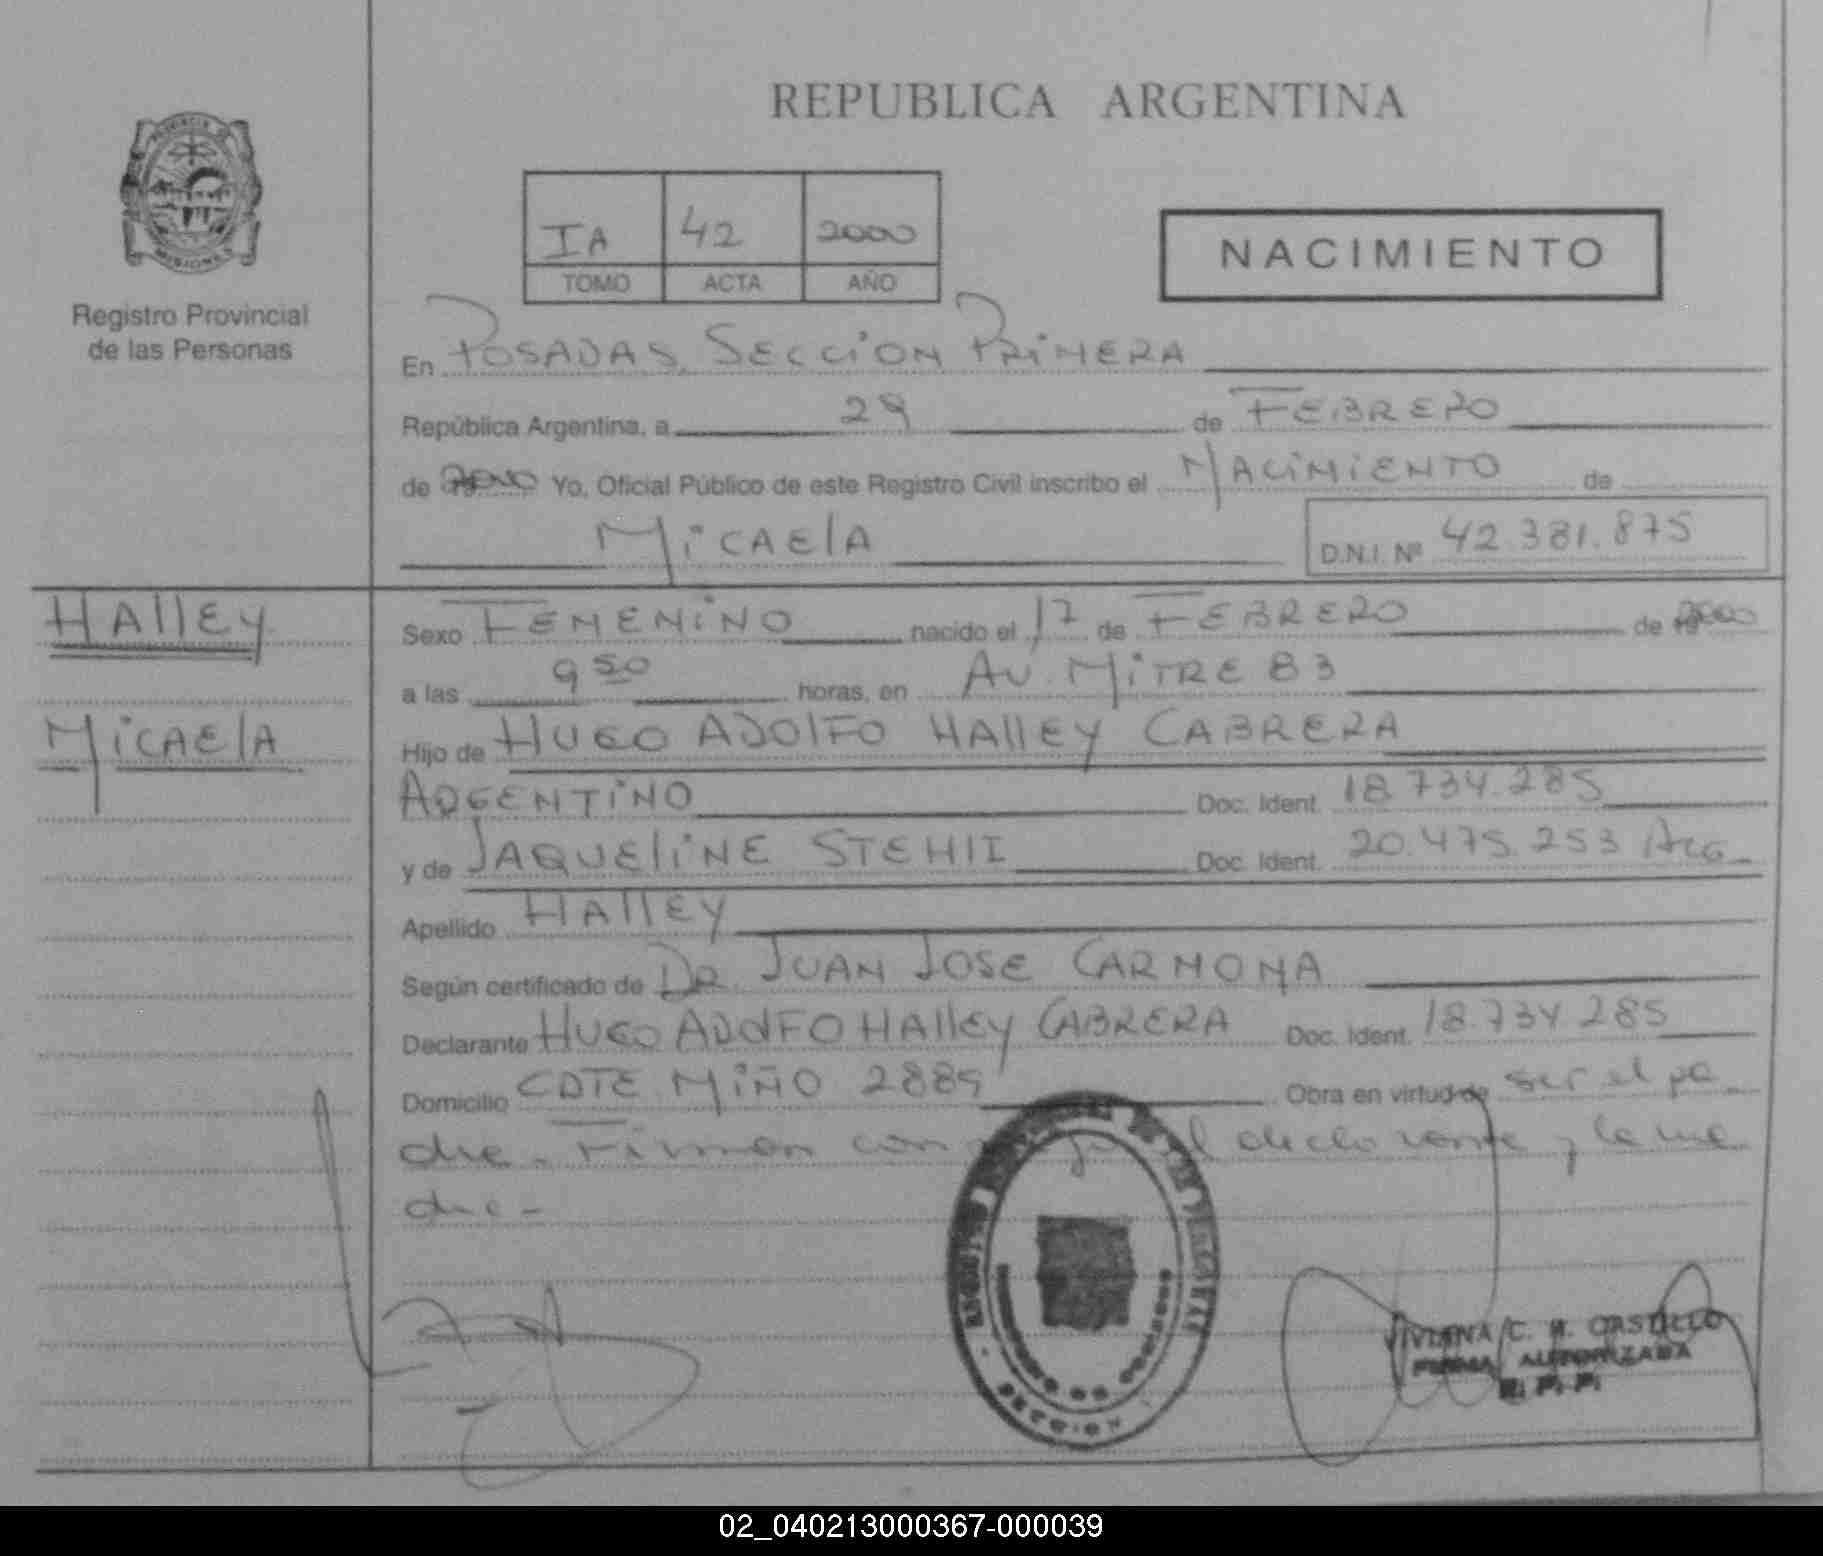 REPUBLICA ARGENTINA
PROVINCIA DE
MISIONES
Registro Provincial
de las Personas
IA 42 2000
TOMO ACTA AÑO
NACIMIENTO
En POSADAS, SECCION PRIMERA
República Argentina, a 29 de FEBRERO
de 2000 Yo, Oficial Público de este Registro Civil inscribo el NACIMIENTO de
MICAElA D.N.I. Nº 42.381.875
HAllEy
Sexo FEMENINO nacido el 17 de FEBRERO de 2000
a las 9 50 horas, en AV. MITRE 83
MICAElA
Hijo de HUGO ADOlFO HAllEy CABRERA
ARGENTINO Doc. Ident. 18.734.285
y de JAQUEliNE STEHlI Doc. Ident. 20.475.253 ARG.
Apellido HAllEy
Según certificado de DR. JUAN JOSE CARMONA
Declarante HUGO ADOlFO HAllEy CABRERA Doc. Ident. 18.734.285
Domicilio CDTE. MIÑO 2889 Obra en virtud de ser el pa
dre. Firman con el declarante y la ma
dre-
VIVIANA C. M. CASTILLO
FIRMA AUTORIZADA
R. P. P.
02_040213000367-000039